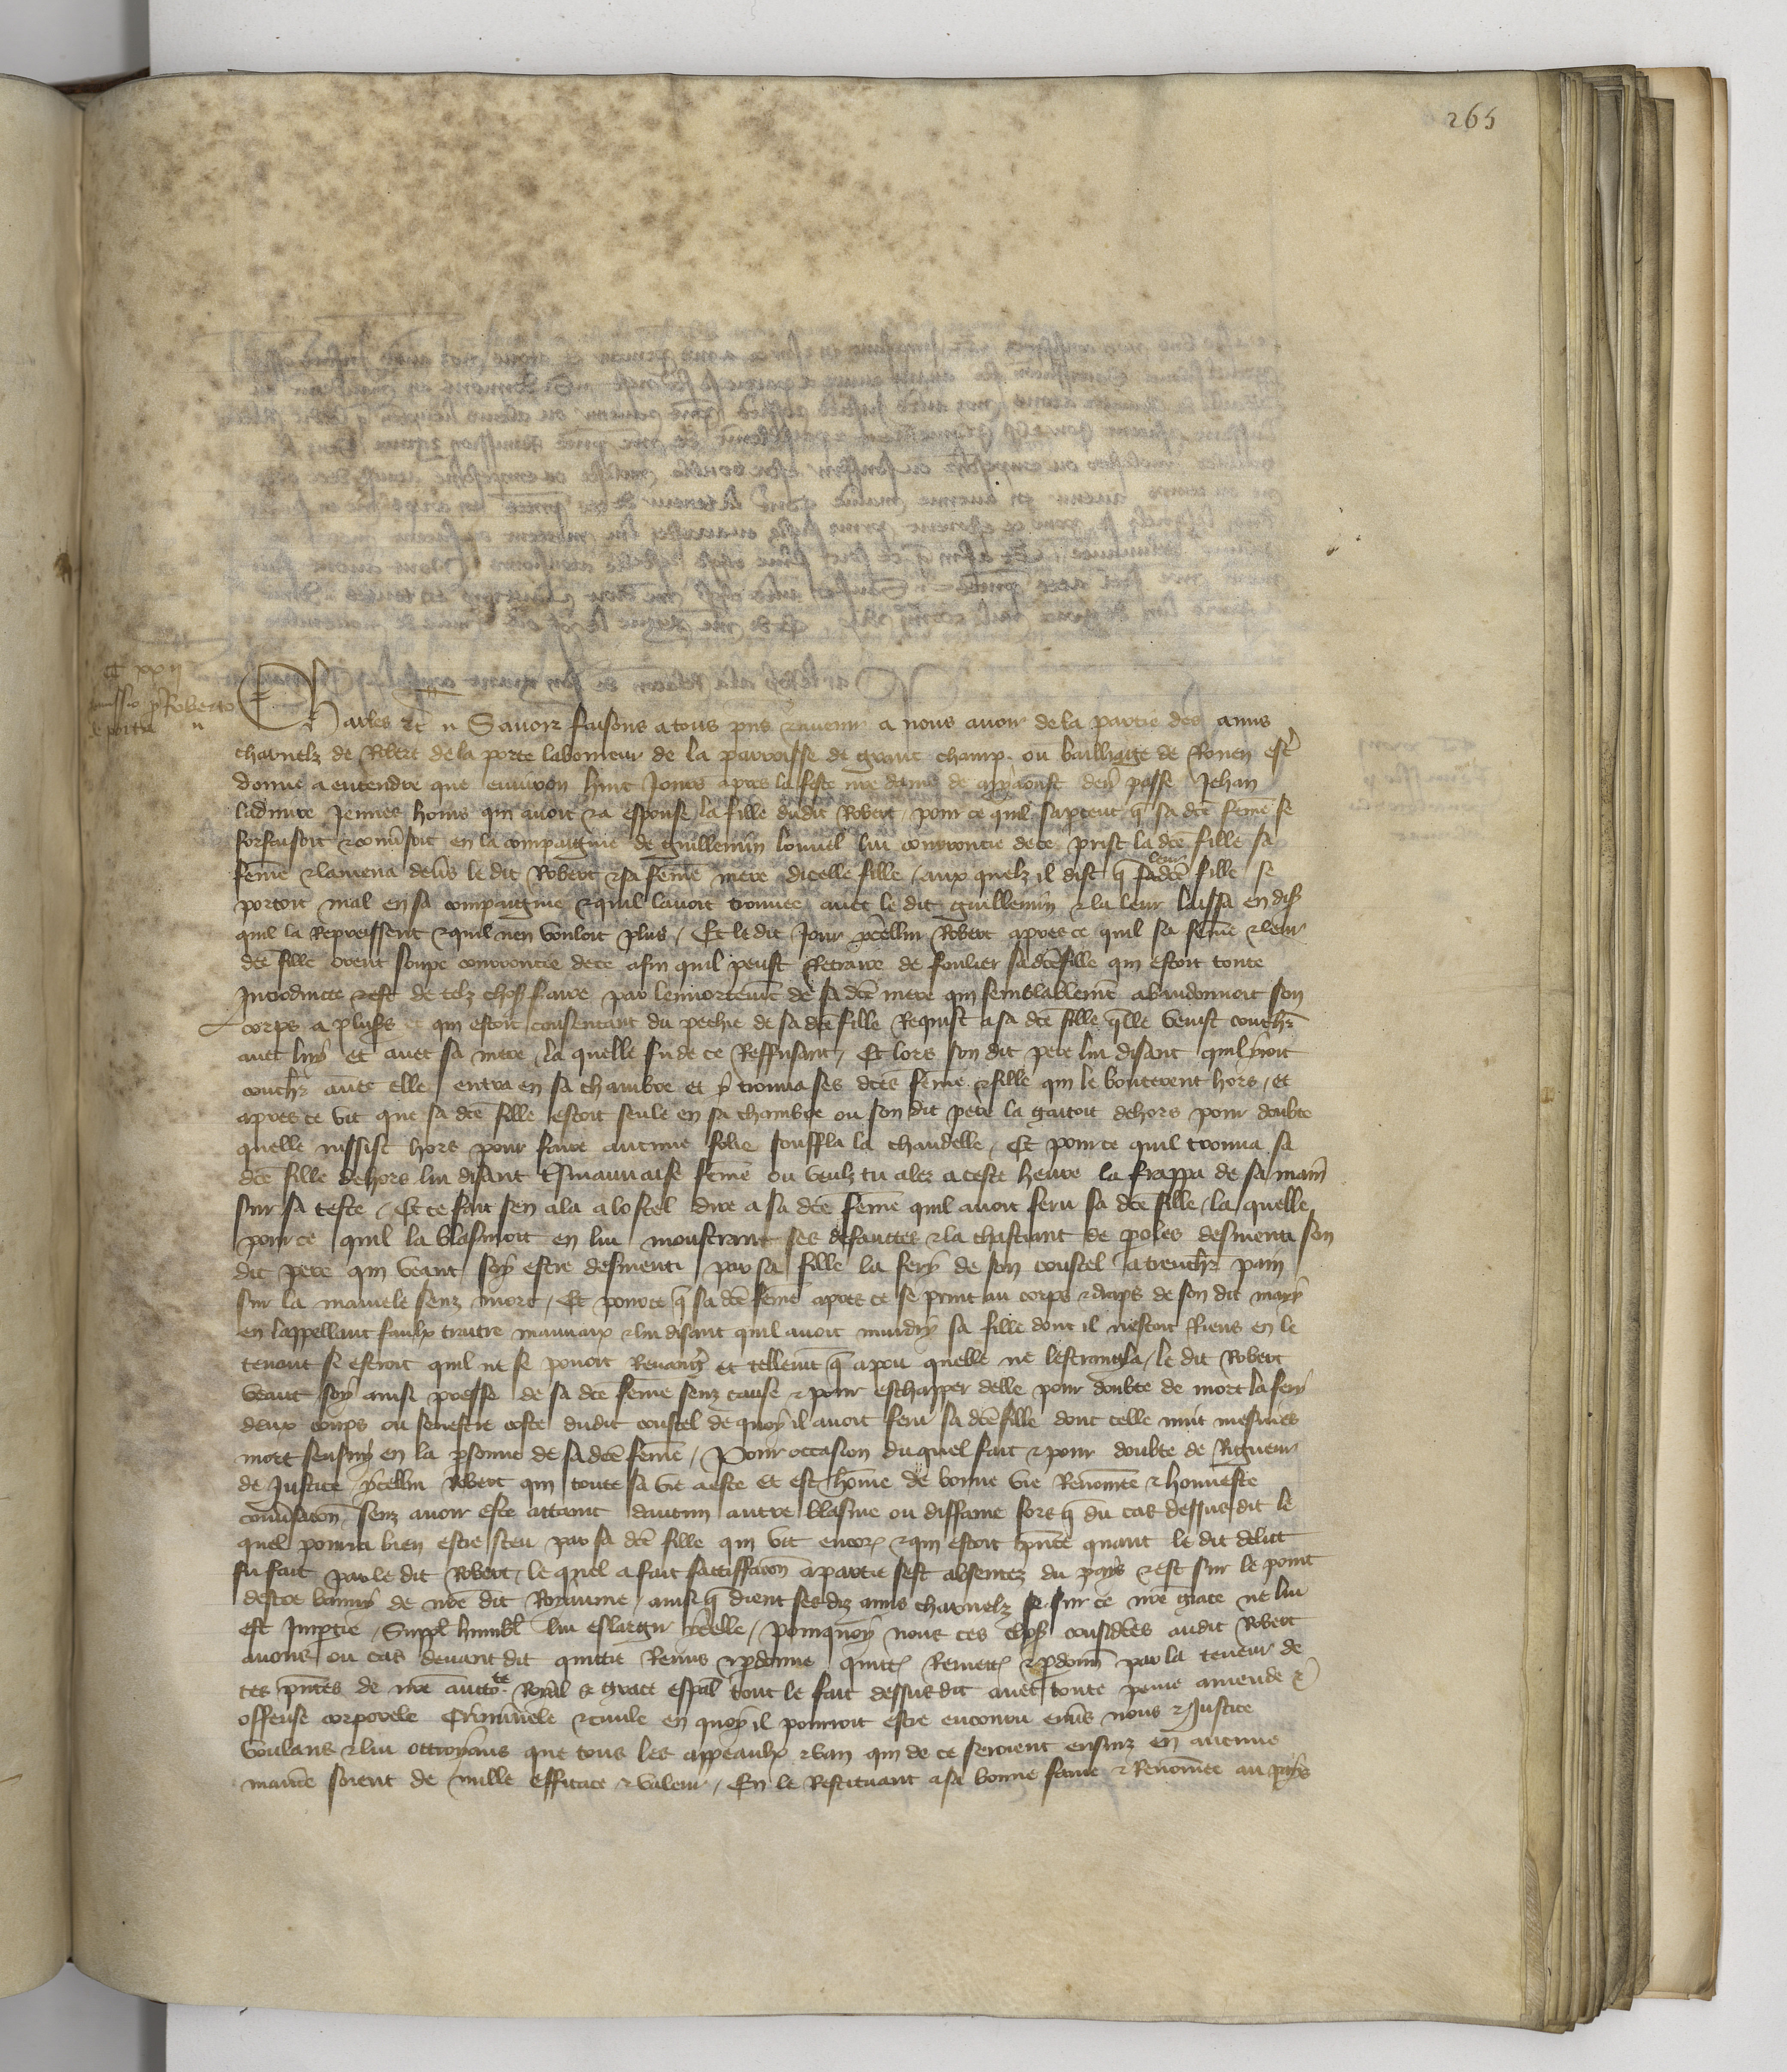 265
xxij
Remissio pro Roberto
de porta
Charles etc. Savoir faisons a tous pns et avenir a nous avoir de la partie des amis
charnelz de Robert de la porte laboureur de la parroisse de grant champ ou bailliage de Rouen este
donne a entendre que environ huit jours apres la feste nre dame de my aoust derr passe Jehan
ladmire jeunes homs qui avoit et a espouse la fille dudit Robert pour ce quil saperceut q sa dce feme se
forfaisoit et conversoit en la compaignie de guillemin lonuel lui courroucie de ce prist la dce fille sa
feme et lamena devs le dit Robert et sa feme mere dicelle fille / aux quelz il dist q leur sadce fille se
portoit mal en sa compaignie et quil lavoit trouvee avec le dit guillemin et la leur laissa en dis
quil la Repreissent et quil nen vouloit plus / Et le dit jour ycellui Robert apres ce quil sa feme et leur
dce fille orent soupe courroucie de ce afin quil peust Retraire de foulier sadce fille qui estoit toute
Introduicte et est de telz choses faire par lenhortemt de sa dce mere qui semblablemt abandonnoit son
corps a plusrs et qui estoit consentant du pechie de sa dce fille Requist a sa dce fille qlle venist couchr
avec luy et avec sa mere la quelle fu de ce Reffusant / Et lors son dit pere lui disant quil yroit
couchr avec elle entra en sa chambre et y trouva ses dces feme et fille qui le bouterent hors / et
apres ce vit que sa dce fille estoit seule en sa chambre ou son dit pere la gaitoit dehors pour doubte
quelle nissist hors pour faire aucune folie souffla la chandelle / Et pour ce quil trouva sa
dce fille dehors lui disant mauvaise feme ou veulz tu aler a ceste heure la frappa de sa main
sur sa teste / Et ce fait sen ala a lostel dire a sa dce feme quil avoit feru sa dce fille / la quelle
pour ce quil la blasmoit en lui monstrant ses defautes et la chastiant de paroles desmenti son
dit pere qui veant soy estre desmenti par sa fille la fery de son coustel a trenchr pain
sur la mamele senz mort / Et pource q sa dce feme apres ce se print au corps et draps de son dit mary
en lappellant faulx traitre mauvaix et lui disant quil avoit murdry sa fille dont il nestoit Riens en le
tenant si estroit quil ne se povoit Revanger et tellemt q a pou quelle ne lestrangla / le dit Robert
veant soy ainsi presse de sa dce feme senz cause et pour eschapper delle pour doubte de mort la fery
deux coups ou senestre coste dudit coustel de quoy il avoit feru sa dce fille dont celle nuit mesmes
mort sensuy en la psonne de sa dce feme / Pour occasion du quel fait et pour doubte de Rigueur
de justice ycellui Robert qui toute sa vie a este et est home de bonne vie Renomee et honneste
convsacon senz avoir este attaint daucun autre blasme ou diffame fors q du cas dessus dit le
quel pourra bien estre sceu par sa dce fille qui vit encores et qui estoit pnte quant le dit delict
fu fait par le dit Robert / le quel a fait sattiffacon a partie sest absentez du pays et est sur le point
destre banny de nre dit Royaume / ainsi q dient ses diz amis charnelz se sur ce nre grace ne lui
est Impartie / Suppl humbl lui eslargir ycelle / Pourquoy nous ces choses considerees audit Robert
avons ou cas devant dit quitte Remis et pdonne quittons Remettons et pdonnons par la teneur de
ces pntes de nre auctorite Royal et grace espal tout le fait dessus dit avec toute peine amende et
offense corporele Criminele et civile en quoy il pourroit estre encouru envs nous et Justice
Voulans et lui ottroyans que tous les appeaulx et ban qui de ce seroient ensuiz en aucune
maniere soient de nulle efficace et valeur / En le Restituant a sa bonne fame et Renomee au pays